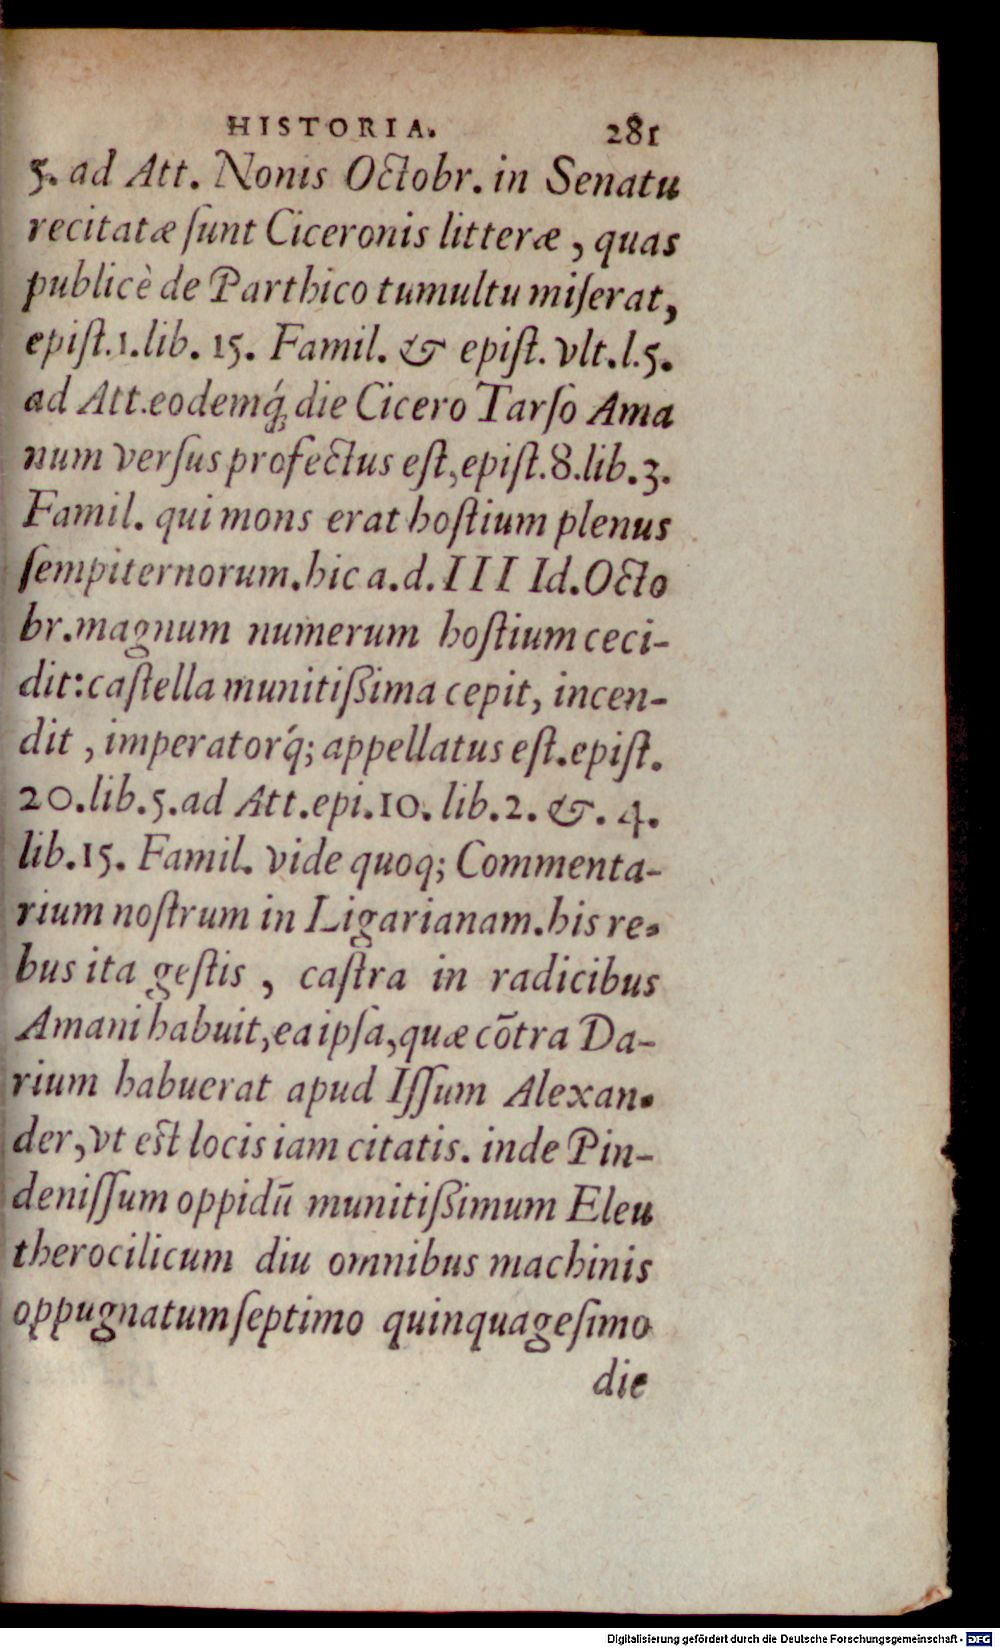 HISTORIA. 281
5. ad Att. Nonis Octobr. in Senatu
recitatæ ſunt Ciceronis litteræ , quas
publicè de Parthico tumultu miſerat,
epiſt.1.lib. 15. Famil. & epiſt. vlt.l.5.
ad Att.eodemq́; die Cicero Tarſo Ama
num verſus profectus eſt,epiſt.8.lib.3.
Famil. qui mons erat hoſtium plenus
ſempiternorum.hic a.d.III Id.Octo
br.magnum numerum hoſtium ceci-
dit:caſtella munitißima cepit, incen-
dit , imperatorq́; appellatus eſt.epiſt.
20.lib.5.ad Att.epi.10. lib.2. &. 4.
lib.15. Famil. vide quoq; Commenta-
rium noſtrum in Ligarianam.his re-
bus ita geſtis , caſtra in radicibus
Amani habuit,ea ipſa,quæ cōtra Da-
rium habuerat apud Iſſum Alexan-
der,vt eſt locis iam citatis. inde Pin-
deniſſum oppidū munitißimum Eleu
therocilicum diu omnibus machinis
oppugnatum ſeptimo quinquageſimo
die
Digitalisierung gefördert durch die Deutsche Forschungsgemeinschaft - DFG